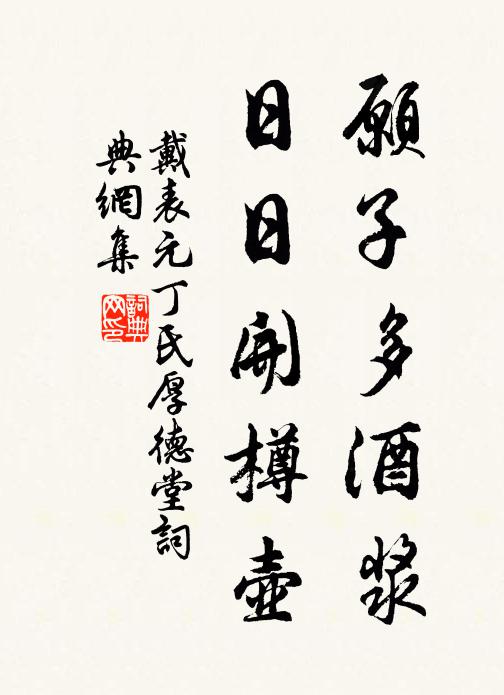 願子多酒漿
日日開樽壺
戴表元丁氏厚德堂詞
典網集
詞典网印